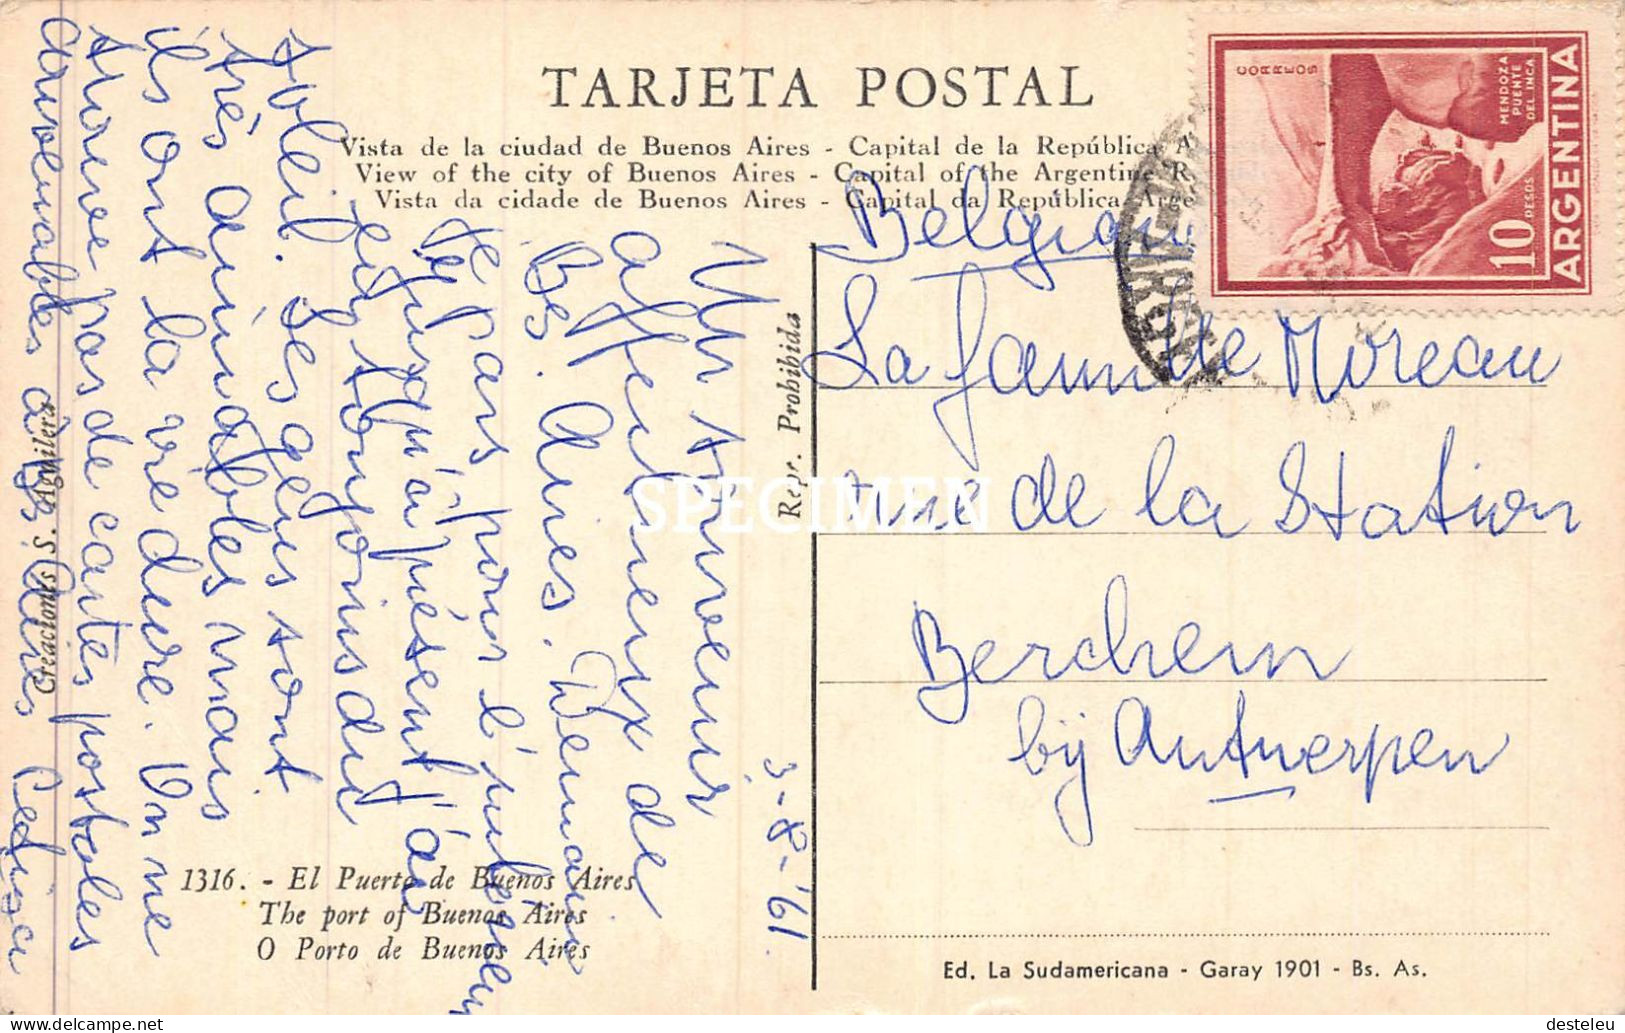 TARJETA POSTAL
Vista de la ciudad de Buenos Aires - Capital de la República A
View of the city of Buenos Aires - Capital of the Argentine R
Vista da cidade de Buenos Aires - Capital da República Arge
CORREOS
MENDOZA
PUENTE
DEL INCA
10 PESOS
ARGENTINA
3-8-'61.
Un souvenir
affectueux de
Bs. Aires. Demain
je pars pour l'
Jusqu'à présent j'ai
eu toujours du
soleil. Les gens sont
très aimables mais
ils ont la vie dure. On ne
trouve pas de cartes postales
convenables à Bs. Aires
Belgian
La famille Moreau
rue de la Station
Berchem
bij Antwerpen
Repr. Prohibida
SPECIMEN
Creaciones S. Aguilera
1316. - El Puerto de Buenos Aires
The port of Buenos Aires
O Porto de Buenos Aires
Ed. La Sudamericana - Garay 1901 - Bs. As.
desteleu